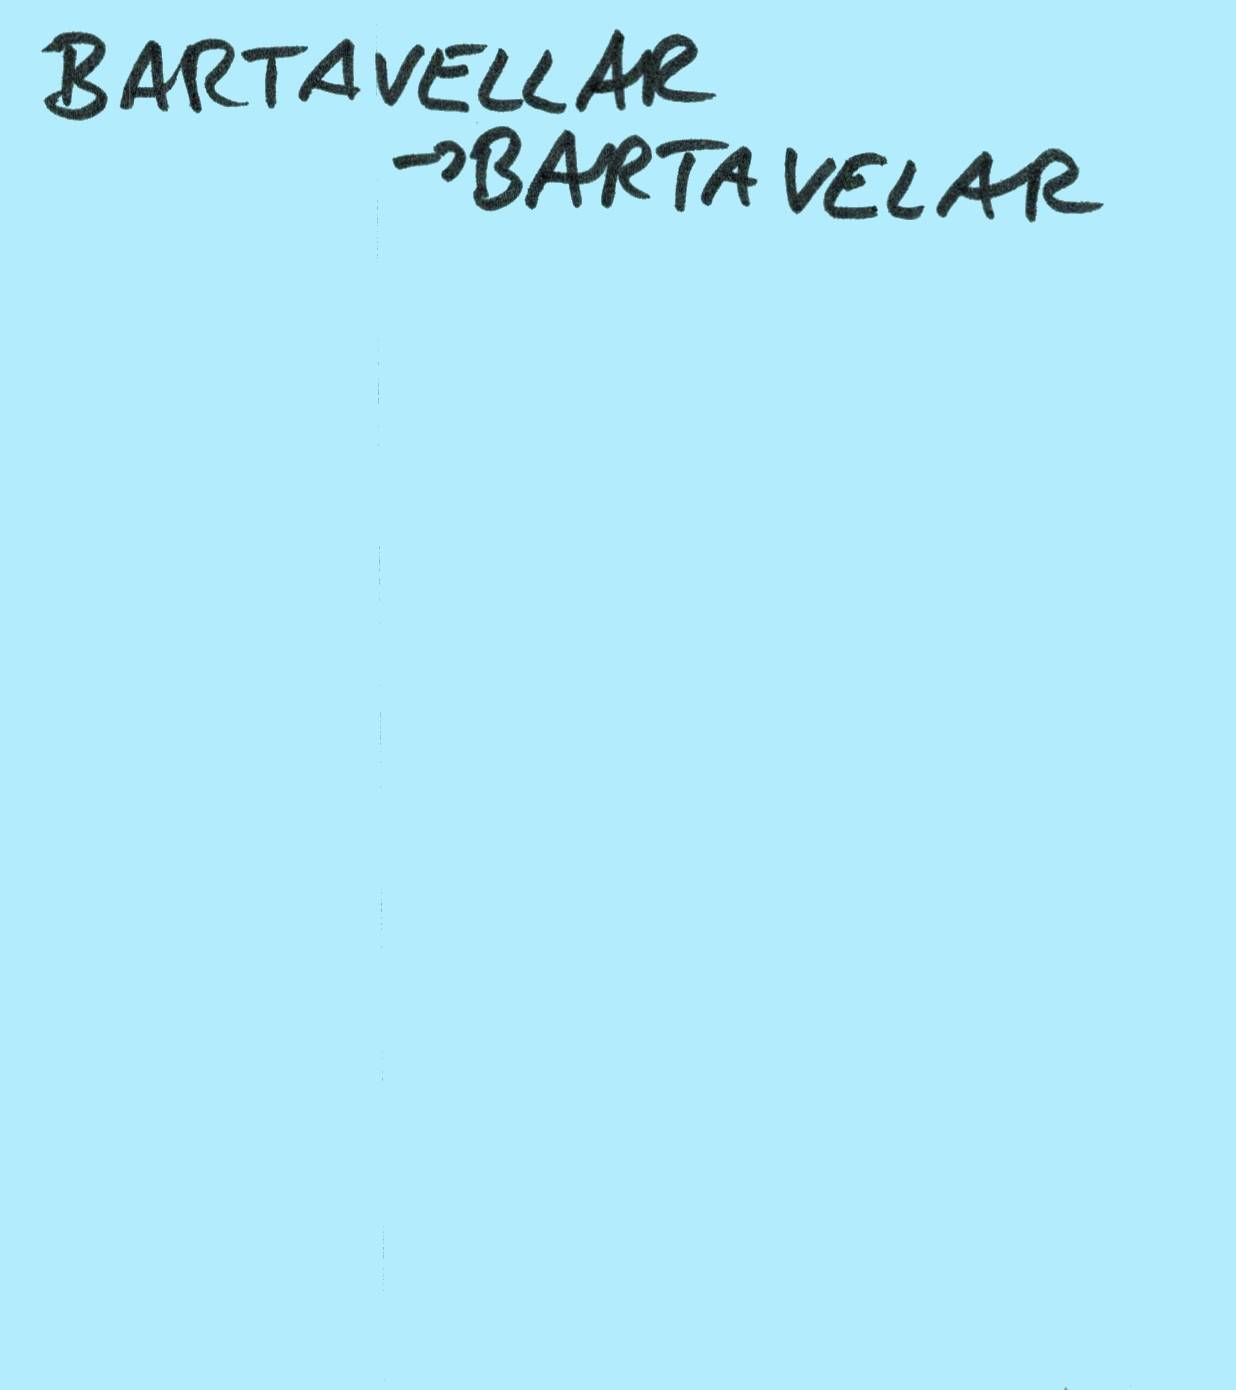 BARTAVELLAR
→BARTAVELAR